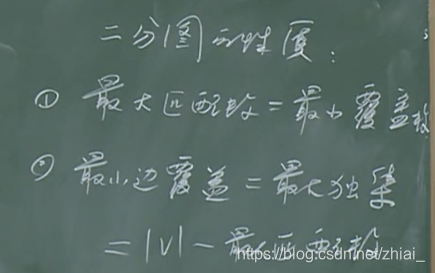 二分图的性质:
① 最大匹配数=最小覆盖数
② 最小边覆盖=最大独集
=|V|-最大匹配数
https://blog.csdn.net/zhiai_